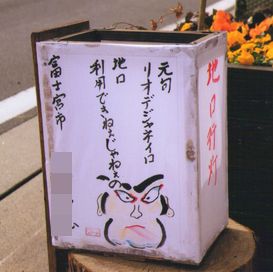 元句
リオデジャネイロ
地口
利用できねぇじゃねぇの
富士宮市
地口行灯